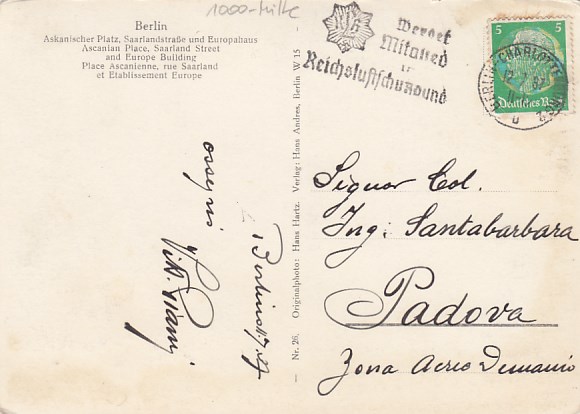 Berlin
Askanischer Platz, Saarlandstraße und Europahaus
Ascanian Place, Saarland Street
and Europe Building
Place Ascanienne, rue Saarland
et Etablissement Europe
1000-
Werdet
Mitglied
im
Reichsluftschutzbund
5 5
Deutsches Reich
BERLIN-CHARLOTTENBURG
Nr. 26. Originalphoto: Hans Hartz. Verlag: Hans Andres, Berlin W 15
ossequi
Berlino
Signor Col.
Ing: Santabarbara
Padova
Zona Aereo Demanio